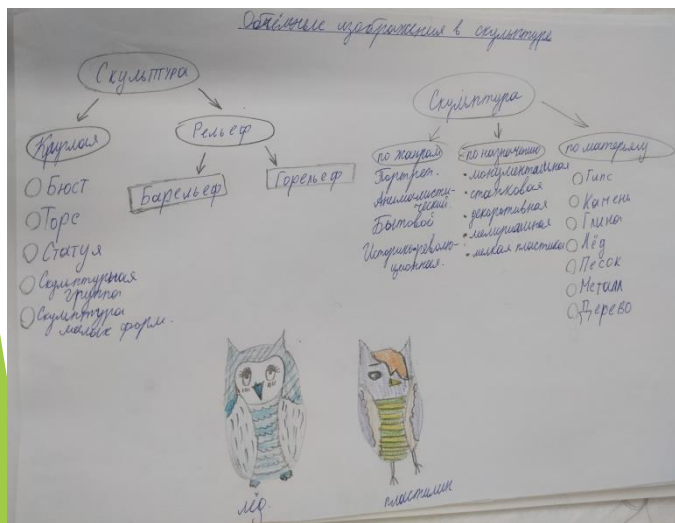 Объёмные изображения в скульптуре
Скульптура
Круглая
Рельеф
Бюст
Торс
Статуя
Скульптурная
группа
Скульптура
малых форм.
Барельеф
Горельеф
Скульптура
по жанрам
Портрет.
Анималисти-
ческий
Бытовой
Историко-револю-
ционная.
по назначению
• монументальная
• станковая
• декоративная
• мемориальная
• мелкая пластика
по материалу
Гипс
Камень
Глина
Лёд
Песок
Металл
Дерево
лёд.
пластилин